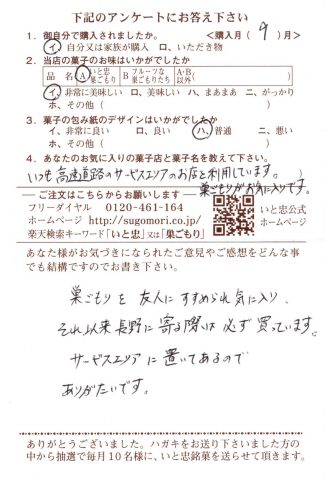 下記のアンケートにお答え下さい
1．御自分で購入されましたか。　＜購入月（ 9 ）月＞
イ、自分又は家族が購入　ロ、いただき物
2．当店の菓子のお味はいかがでしたか
品　名　A いと忠巣ごもり　B フルーツな巣ごもりたち　A・B以外（　　　）
イ、非常に美味しい　ロ、美味しい　ハ、まあまあ　ニ、がっかり
ホ、その他（　　　）
3．菓子の包み紙のデザインはいかがでしたか
イ、非常に良い　ロ、良い　ハ、普通　ニ、悪い
ホ、その他（　　　）
4．あなたのお気に入りの菓子店と菓子名を教えて下さい。
いつも高速道路のサービスエリアのお店を利用しています。
巣ごもりがお気に入りです。
ご注文はこちらからお願いします
フリーダイヤル　0120-461-164
ホームページ　http://sugomori.co.jp/
楽天検索キーワード「いと忠」又は「巣ごもり」
いと忠公式
ホームページ
あなた様がお気づきになられたご意見やご感想をどんな事
でも結構ですのでお書き下さい。
巣ごもりを友人にすすめられ気に入り、
それ以来長野に寄る際は必ず買っています。
サービスエリアに置いてあるので
ありがたいです。
ありがとうございました。ハガキをお送り下さいました方の
中から抽選で毎月10名様に、いと忠銘菓を送らせて頂きます。